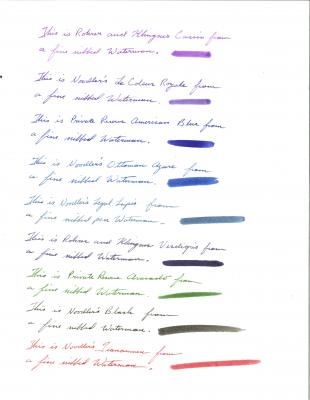 This is Rohrer and Klingner Cassia from
a fine nibbed Waterman.
This is Noodler's La Coleur Royale from
a fine nibbed Waterman.
This is Private Reserve American Blue from
a fine nibbed Waterman.
This is Noodler's Ottoman Azure from
a fine nibbed Waterman.
This is Noodler's Legal Lapis from
a fine nibbed pen Waterman.
This is Rohrer and Klingner Verdigris from
a fine nibbed Waterman.
This is Private Reserve Avacado from
a fine nibbed Waterman.
This is Noodler's Black from
a fine nibbed Waterman.
This is Noodler's Tiananmen from
a fine nibbed Waterman.